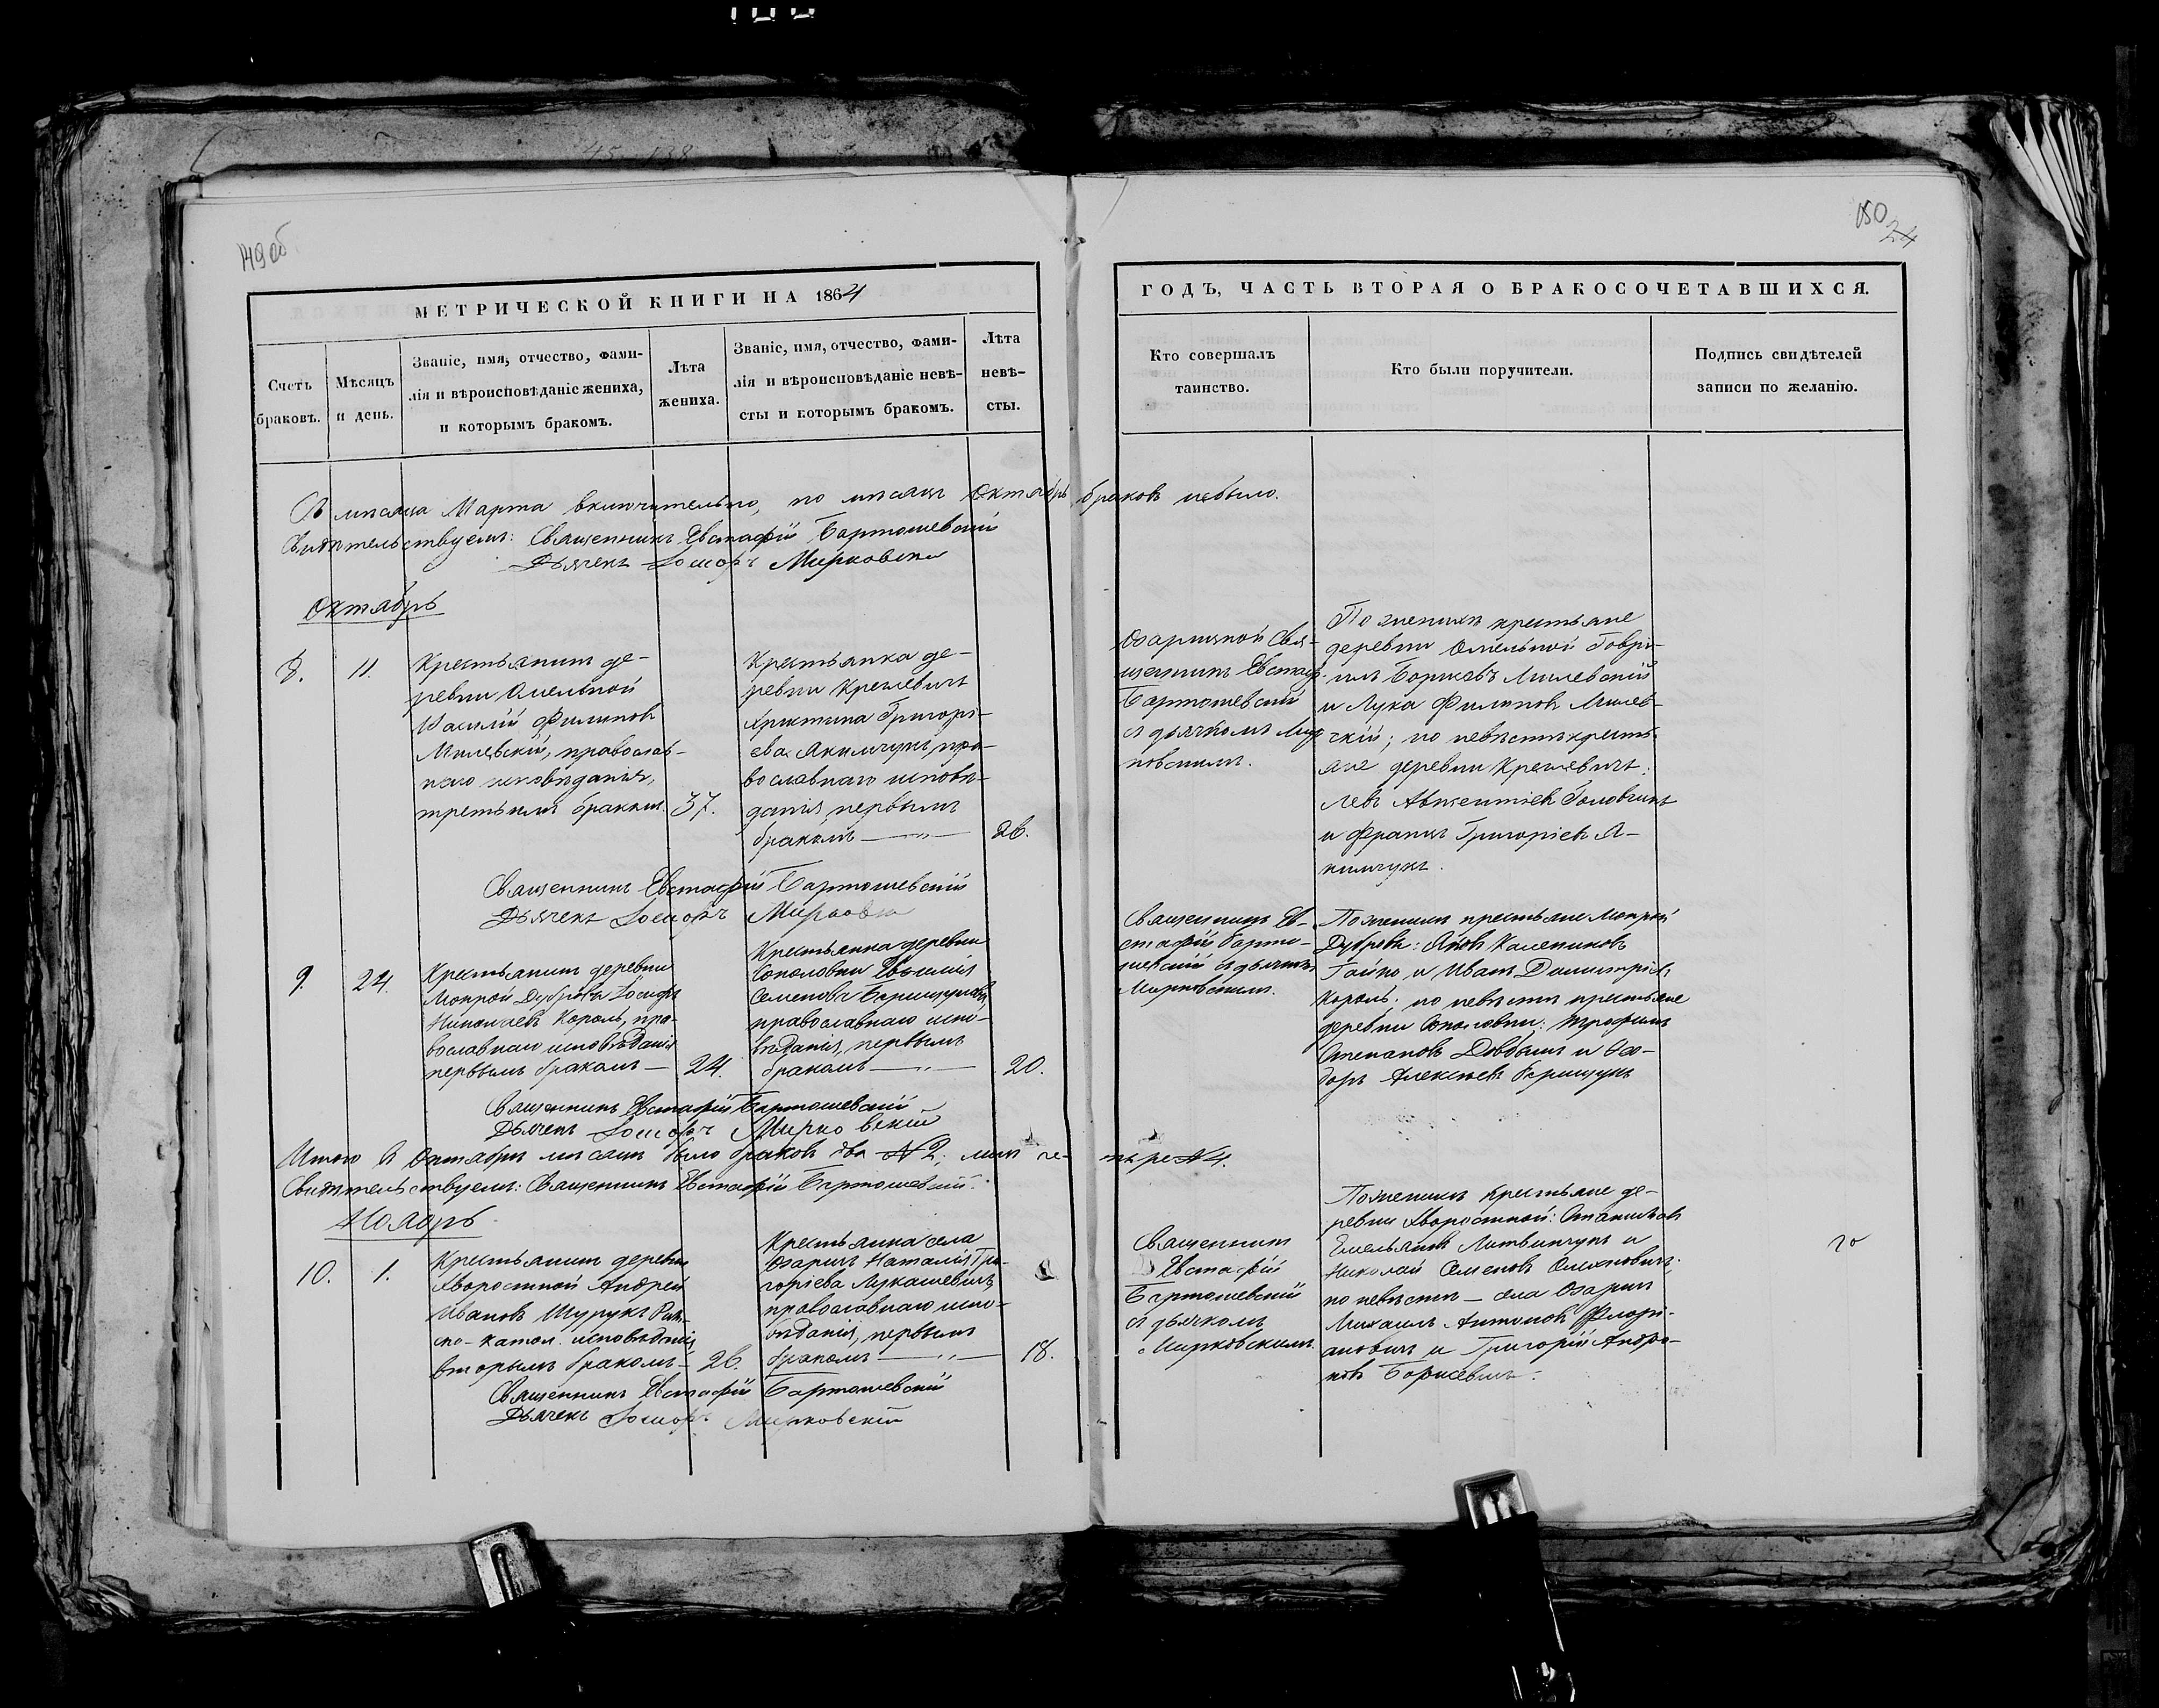 149 об
150
24
МЕТРИЧЕСКОЙ КНИГИ НА 1864
Счетъ браковъ.
Мѣсяцъ и день.
Званіе, имя, отчество, фами-
лія и вѣроисповѣданіе жениха,
и которымъ бракомъ.
Лѣта
жениха.
Званіе, имя, отчество, фами-
лія и вѣроисповѣданіе невѣ-
сты и которымъ бракомъ.
Лѣта
невѣ-
сты.
ГОДЪ, ЧАСТЬ ВТОРАЯ О БРАКОСОЧЕТАВШИХСЯ.
Кто совершалъ
таинство.
Кто были поручители.
Подпись свидѣтелей
записи по желанію.
Съ мѣсяца Марта включительно, по мѣсяцъ Октябрь браковъ небыло.
Свидѣтельствуемъ: Священникъ Евстафій Бартошевскій
Дьячекъ Іосифъ Мирковскій
Октябрь
8.
11.
Крестьянинъ де-
ревни Омельной
Василій Филиповъ
Милевскій, православ-
наго исповѣданія,
третьимъ бракомъ.
37.
Крестьянка де-
ревни Крешевичъ
Христина Григорі-
ева Якимчукъ, пра-
вославнаго исповѣ-
данія, первымъ
бракомъ — „ —
26.
Озарицкой Свя-
щенникъ Евстаф.
Бартошевскій
съ дьячкомъ Мир-
ковскимъ.
По женихѣ крестьяне
деревни Омельной Гаврі-
илъ Борисовъ Милевскій
и Лука Филиповъ Милев-
скій; по невѣстѣ кресть-
яне деревни Крешевичъ:
Левъ Авксентіевъ Головчикъ
и Францъ Григоріевъ Я-
кимчукъ.
Священникъ Евстафій Бартошевскій
Дьячекъ Іосифъ Мирковскій
9.
24.
Крестьянинъ деревни
Мокрой Дубровы Іосифъ
Николаевъ Король, пра-
вославнаго исповѣданія
первымъ бракомъ —
24.
Крестьянка деревни
Соколовки Евфимія
Семенова Борищукова,
православнаго испо-
вѣданія, первымъ
бракомъ — „ —
20.
Священникъ Ев-
стафій Барто-
шевскій съ дьячкомъ
Мирковскимъ.
По женихѣ крестьяне Мокрой
Дубровы: Яковъ Калениковъ
Гайко и Иванъ Димитріевъ
Король; по невѣстѣ крестьяне
деревни Соколовки: Трофимъ
Степановъ Довбышъ и Ѳео-
доръ Алексѣевъ Борищукъ
Священникъ Евстафій Бартошевскій
Дьячекъ Іосифъ Мирковскій
Итого въ Октябрѣ мѣсяцѣ было браковъ два № 2; лицъ че- тыре № 4.
Свидѣтельствуемъ: Священникъ Евстафій Бартошевскій.
Ноябрь
10.
1.
Крестьянинъ деревни
Хворостной Андрей
Ивановъ Шурукъ Рим-
ско-катол. исповѣданія,
вторымъ бракомъ —
26.
Крестьянка села
Озаричъ Наталія Гри-
горіева Лукашевичъ,
православнаго испо-
вѣданія, первымъ
бракомъ — „ —
18.
Священникъ
Евстафій
Бартошевскій
съ дьячкомъ
Мирковскимъ.
По женихѣ крестьяне де-
ревни Хворостной: Станиславъ
Емельяновъ Литвинчукъ и
Николай Семеновъ
по невѣстѣ — села Озаричъ
Михаилъ Антоновъ Флорі-
ановичъ и Григорій Андро-
новъ Борисевичъ.
Священникъ Евстафій Бартошевскій
Дьячекъ Іосифъ Мирковскій